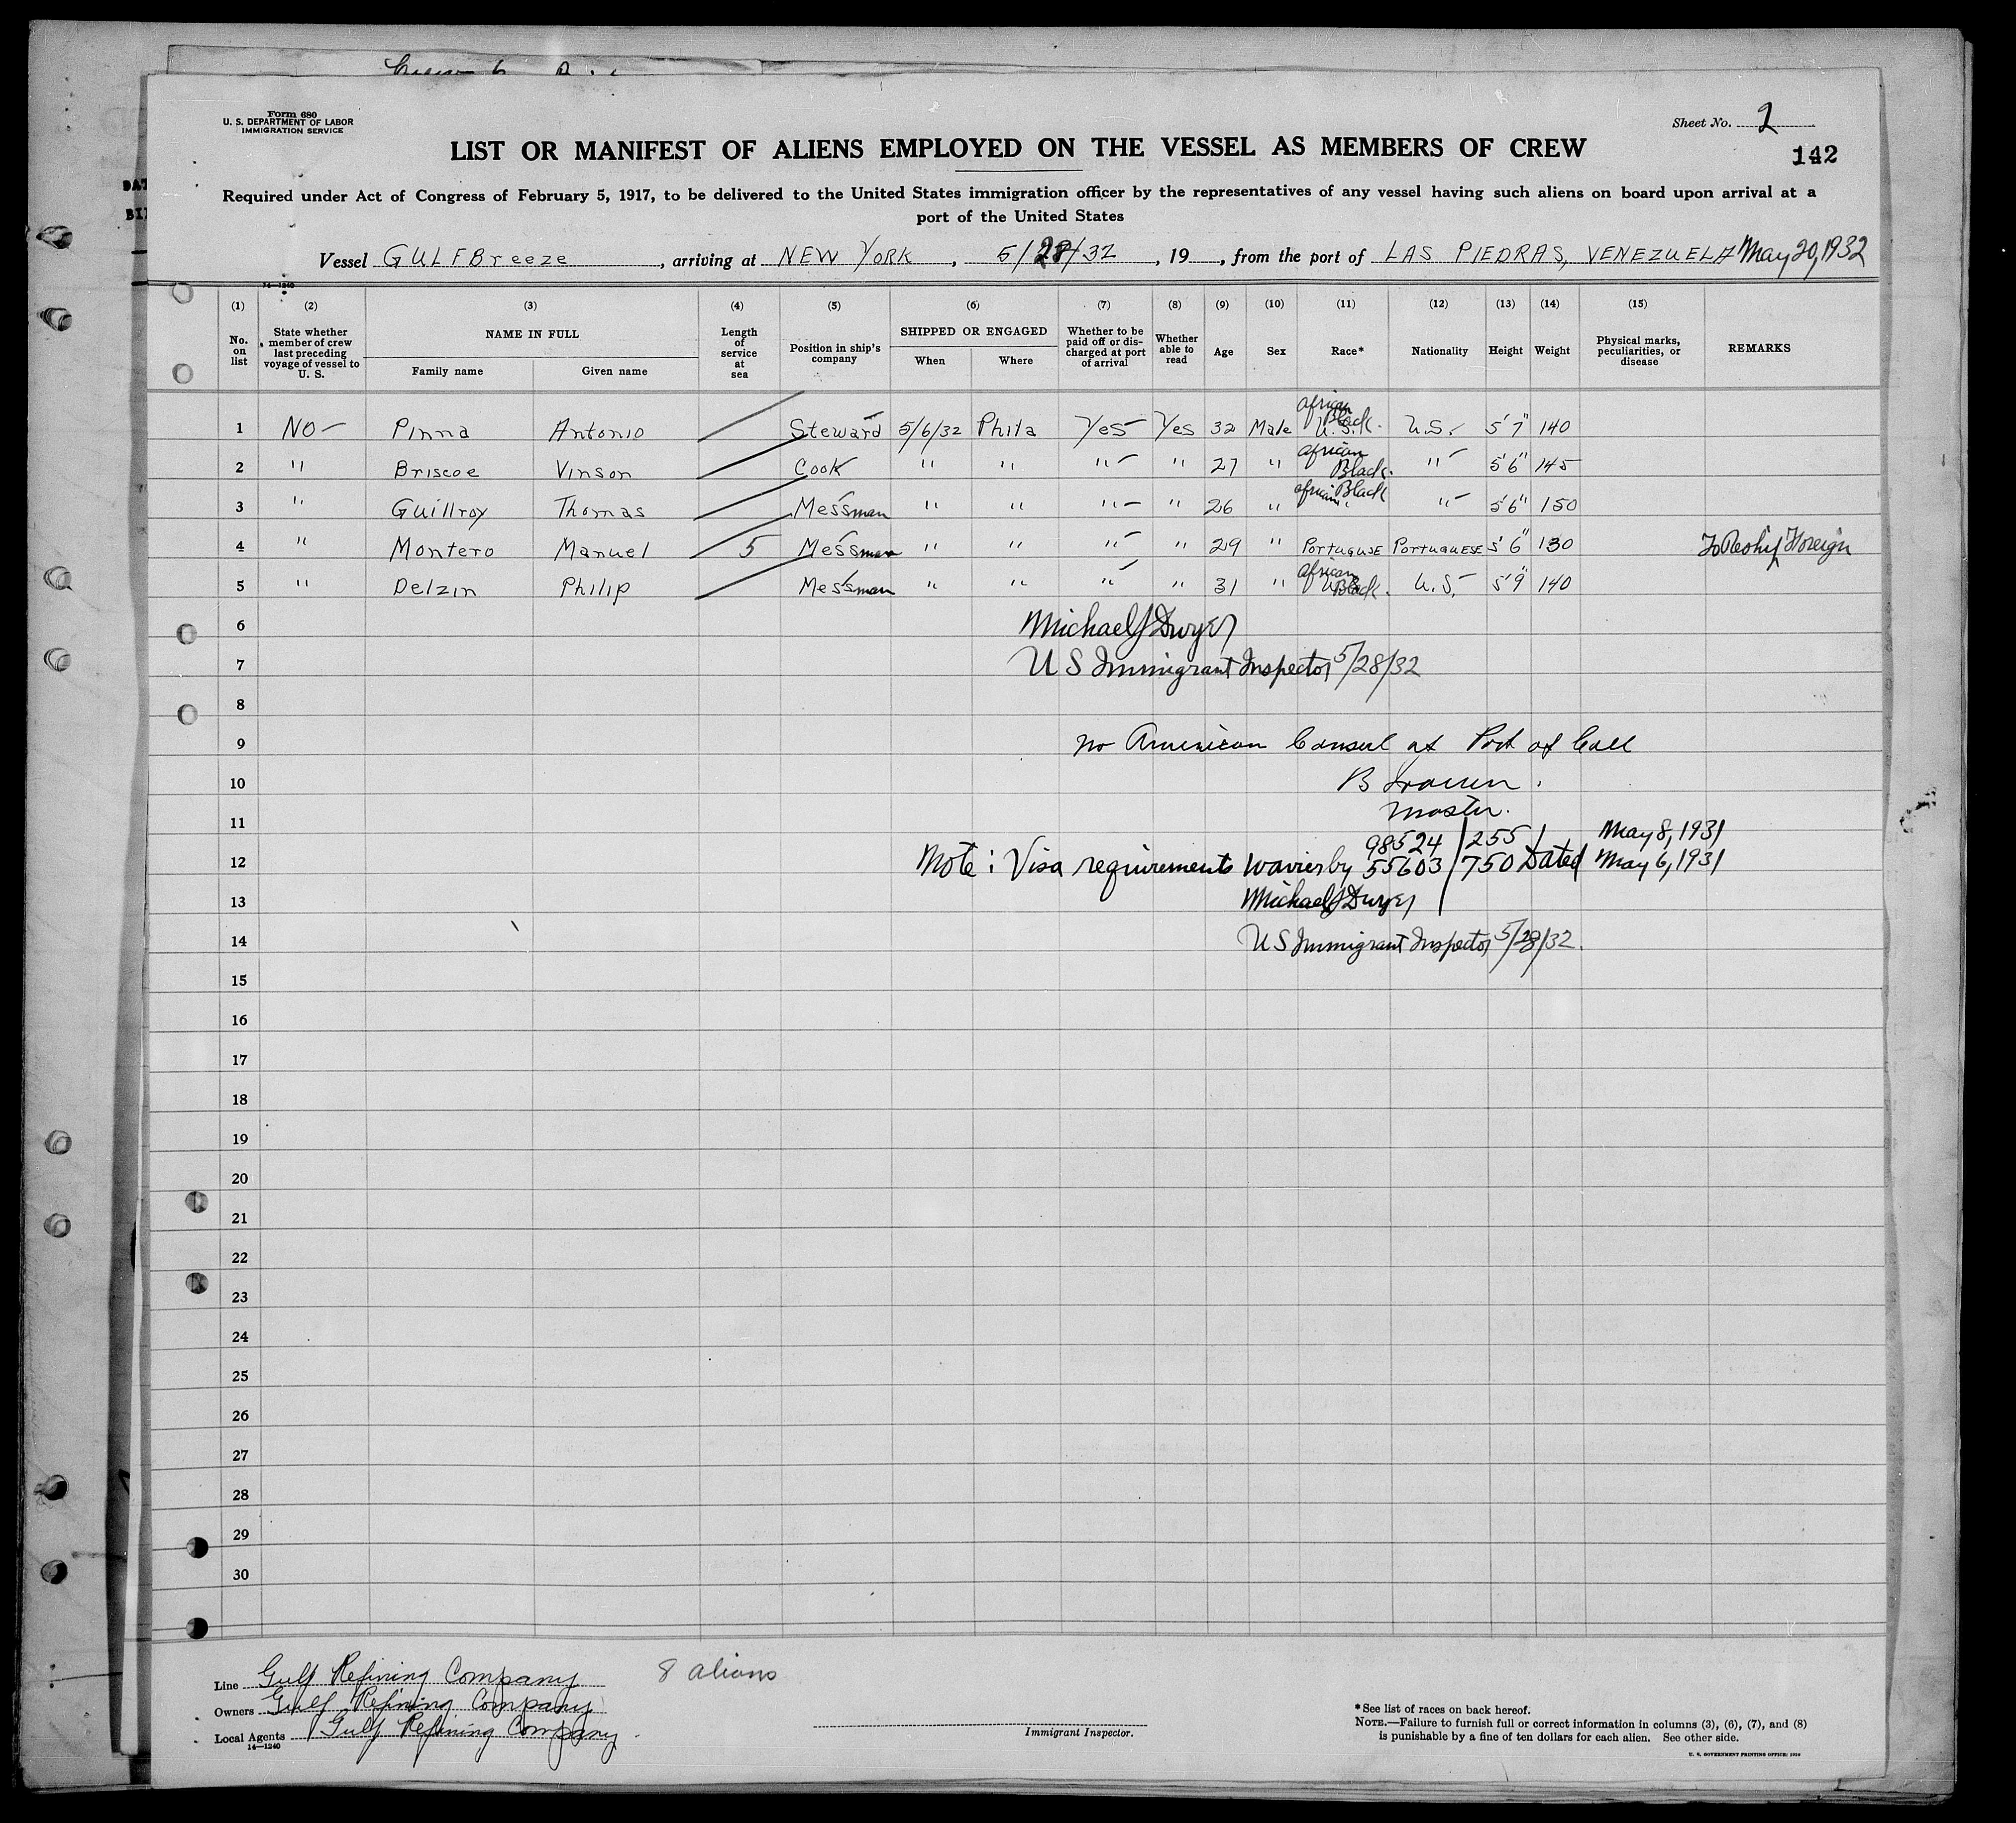 Form 680
U. S. DEPARTMENT OF LABOR
IMMIGRATION SERVICE
Sheet No. 2
LIST OR MANIFEST OF ALIENS EMPLOYED ON THE VESSEL AS MEMBERS OF CREW
142
Required under Act of Congress of February 5, 1917, to be delivered to the United States immigration officer by the representatives of any vessel having such aliens on board upon arrival at a
port of the United States
Vessel GULFBreeze, arriving at NEW YORK, 5/28/32, 19 , from the port of LAS PIEDRAS, VENEZUELA May 20, 1932
14—1240
(1) (2) (3) (4) (5) (6) (7) (8) (9) (10) (11) (12) (13) (14) (15)
No. on list
State whether member of crew last preceding voyage of vessel to U. S.
NAME IN FULL
Family name Given name
Length of service at sea
Position in ship's company
SHIPPED OR ENGAGED
When Where
Whether to be paid off or discharged at port of arrival
Whether able to read
Age
Sex
Race*
Nationality
Height
Weight
Physical marks, peculiarities, or disease
REMARKS
1 NO— Pinna Antonio Steward 5/6/32 Phila Yes Yes 32 Male african Black U.S. U.S. 5'7" 140
2 " Briscoe Vinson Cook " " " " 27 " african Black. " 5'6" 145
3 " Guillroy Thomas Messman " " " " 26 " african Black " 5'6" 150
4 " Montero Manuel 5 Messman " " " " 29 " Portuguse Portuguese 5'6" 130 To Reship Foreign
5 " Delzin Philip Messman " " " " 31 " african Black. U.S. 5'9" 140
6 Michael J Dwyer
7 US Immigrant Inspector 5/28/32
8
9 no American Consul at Port of Call
10 B
11 Master.
98524/255 May 8, 1931
12 Note: Visa requirements wavier by 55603/750 Dated May 6, 1931
13 Michael J Dwyer
14 US Immigrant Inspector 5/28/32.
15
16
17
18
19
20
21
22
23
24
25
26
27
28
29
30
Line Gulf Refining Company
8 aliens
Owners Gulf Refining Company
Local Agents Gulf Refining Company.
14—1240
Immigrant Inspector.
*See list of races on back hereof.
NOTE.—Failure to furnish full or correct information in columns (3), (6), (7), and (8)
is punishable by a fine of ten dollars for each alien. See other side.